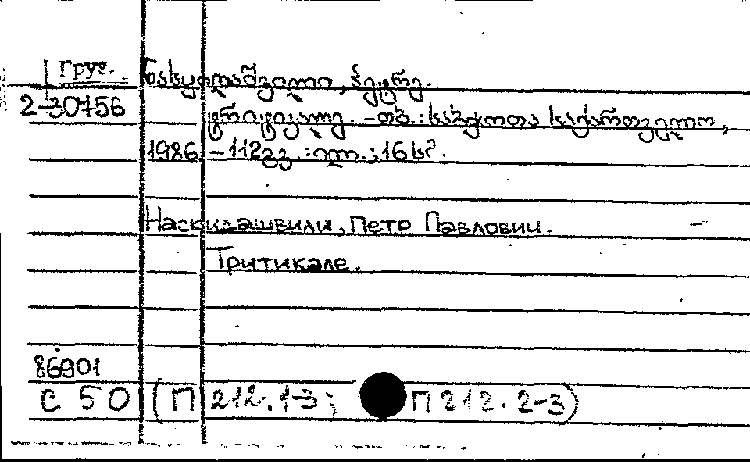 Груз. ნასყიდაშვილი, პეტრე.
2-30756 ტრიტიკალე. -თბ.: საბჭოთა საქართველო,
1986 -112გვ. :ილ.;16 სმ.
Наскидашвили, Петр Павлович.
Тритикале.
86901
С 50 (П 212.1-3; П 212.2-3)